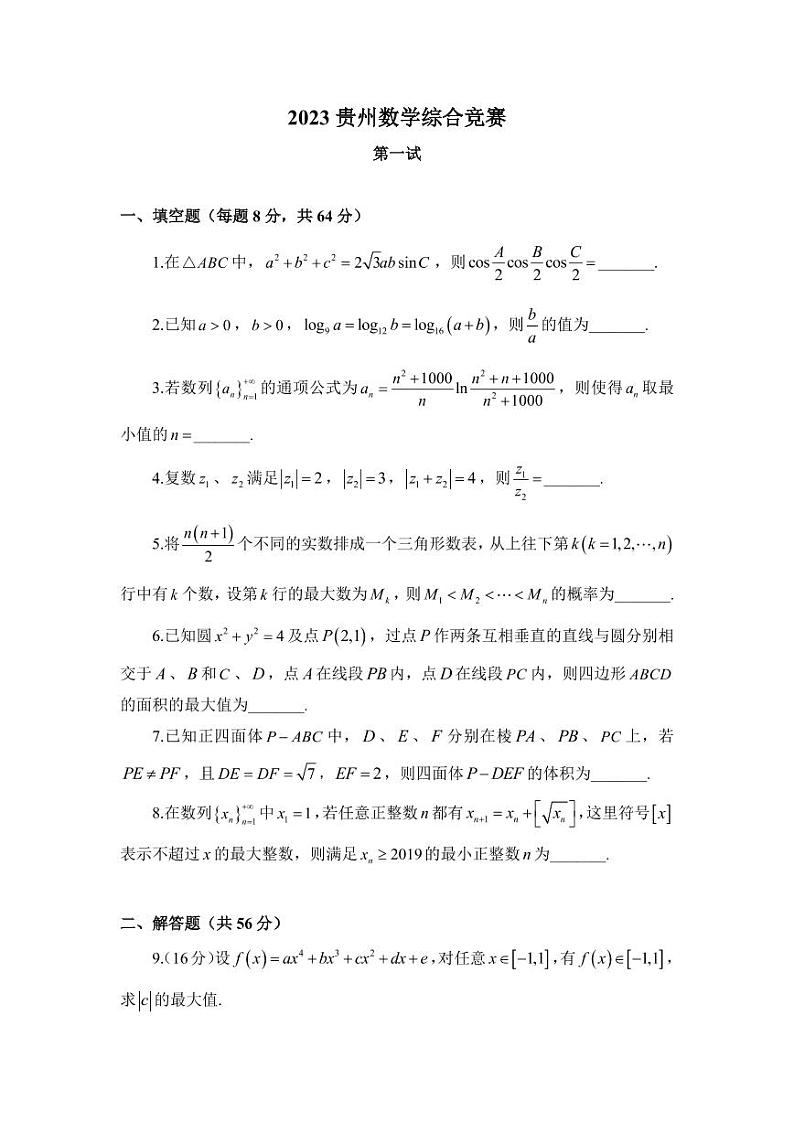 2023 贵州数学综合竞赛
第一试
一、填空题（每题 8 分，共 64 分）
1.在△ABC 中，a² + b² + c² = 2√3ab sin C，则 cos A/2 cos B/2 cos C/2 = _______.
2.已知 a > 0，b > 0，log₉ a = log₁₂ b = log₁₆ (a + b)，则 b/a 的值为_______.
3.若数列 {aₙ}ₙ₌₁⁺∞ 的通项公式为 aₙ = (n² + 1000)/n ln (n² + n + 1000)/(n² + 1000)，则使得 aₙ 取最
小值的 n = _______.
4.复数 z₁、z₂ 满足 |z₁| = 2，|z₂| = 3，|z₁ + z₂| = 4，则 z₁/z₂ = _______.
5.将 n(n+1)/2 个不同的实数排成一个三角形数表，从上往下第 k (k = 1,2,⋯,n)
行中有 k 个数，设第 k 行的最大数为 Mₖ，则 M₁ < M₂ < ⋯ < Mₙ 的概率为_______.
6.已知圆 x² + y² = 4 及点 P(2,1)，过点 P 作两条互相垂直的直线与圆分别相
交于 A、B 和 C、D，点 A 在线段 PB 内，点 D 在线段 PC 内，则四边形 ABCD
的面积的最大值为_______.
7.已知正四面体 P − ABC 中，D、E、F 分别在棱 PA、PB、PC 上，若
PE ≠ PF，且 DE = DF = √7，EF = 2，则四面体 P − DEF 的体积为_______.
8.在数列 {xₙ}ₙ₌₁⁺∞ 中 x₁ = 1，若任意正整数 n 都有 xₙ₊₁ = xₙ + [√xₙ]，这里符号 [x]
表示不超过 x 的最大整数，则满足 xₙ ≥ 2019 的最小正整数 n 为_______.
二、解答题（共 56 分）
9.（16 分）设 f(x) = ax⁴ + bx³ + cx² + dx + e，对任意 x ∈ [−1,1]，有 f(x) ∈ [−1,1]，
求 |c| 的最大值.